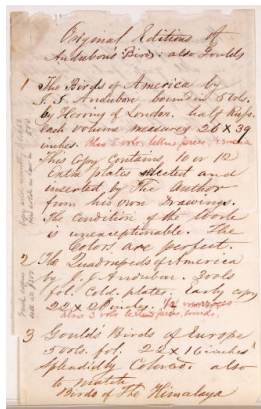 Original Editions of
Audubon's Birds also Goulds
1 The Birds of America by
J. J. Audubon bound in 5 vols.
by Herring of London. half Russ.
Each volume measures 26 X 39
inches. Also 5 vols. letter press,
This Copy Contains 10 or 12
Extra plates selected and
inserted by The Author
from his own Drawings.
The Condition of The Work
is unexceptionable. The
Colors are perfect.
2 The Quadrupeds of America
by J. J. Audubon. 3 vols
fol. Cold. plates. Early copy
22 X 28 inches.
Also 3 vols letter press,
3 Gould's Birds of Europe
5 vols. fol. 22 X 16 inches
Splendidly Colored. also
to match
Birds of The Himalaya